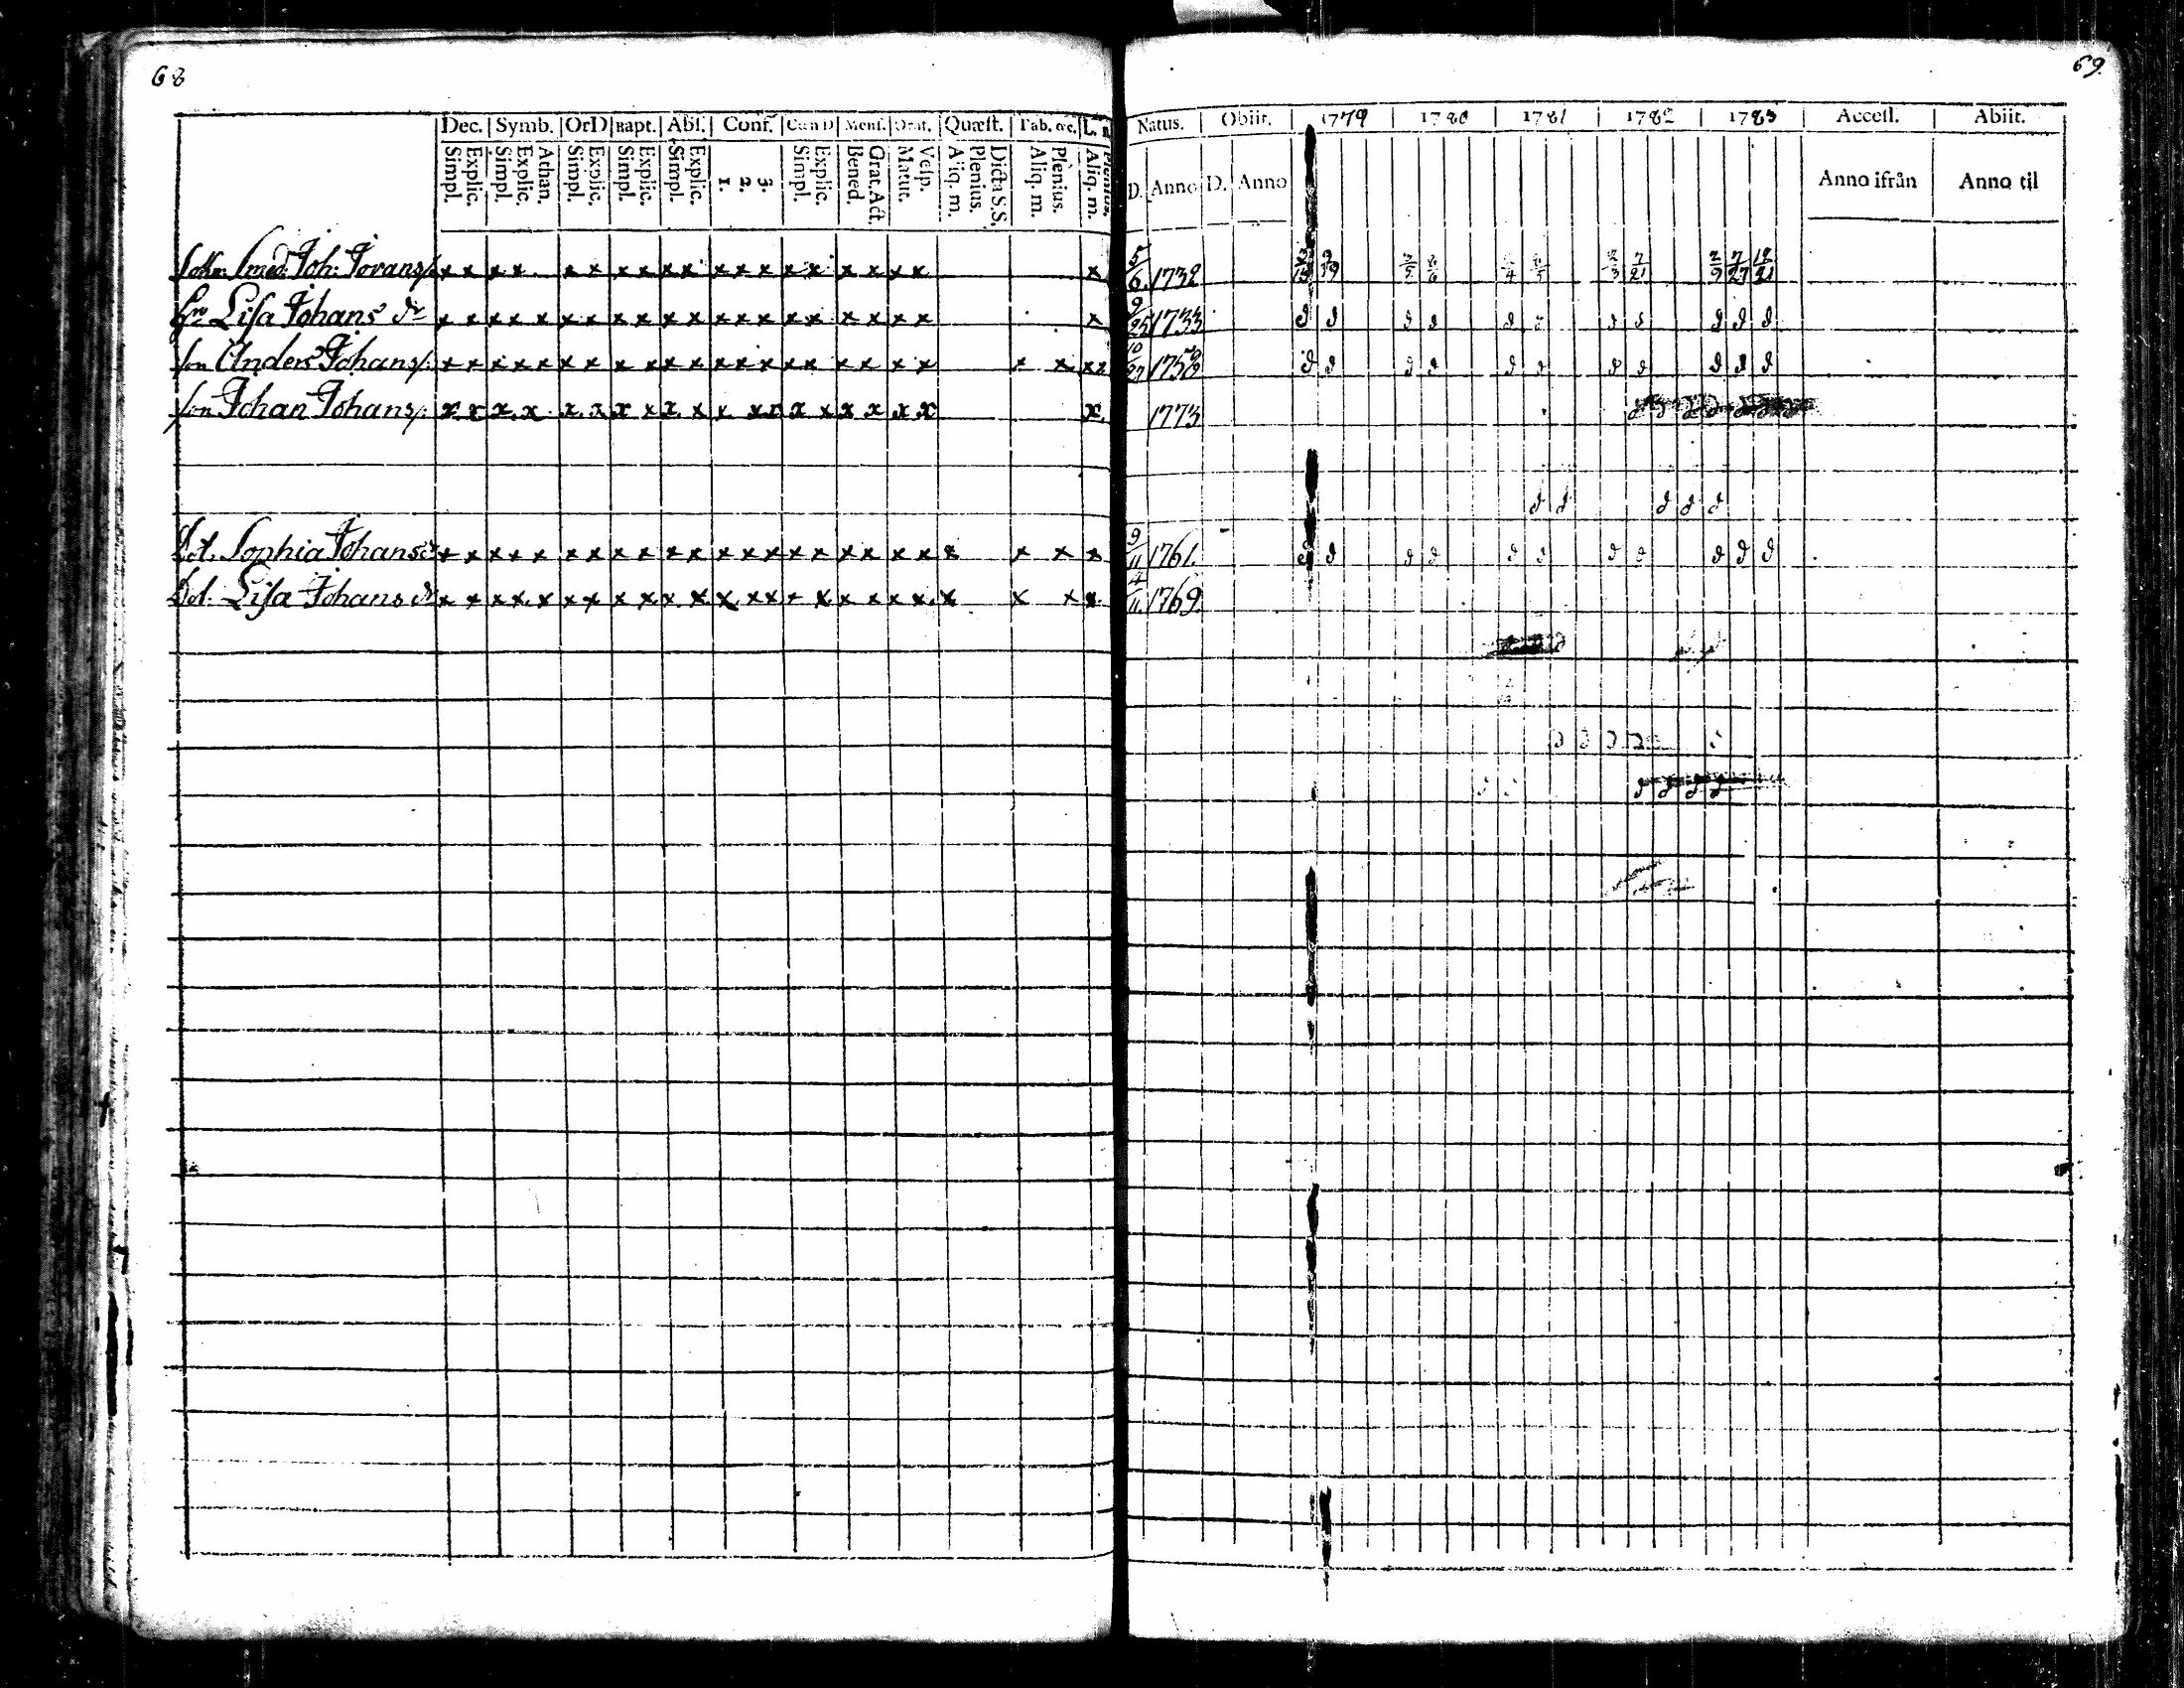 68
Dec. Symb. OrD Bapt. Abs. Conf. Cœn D Mens. Orat. Quæst. Tab. œc. L. n
Simpl. Explic. Simpl. Explic. Athan. Simpl. Explic. Simpl. Explic. Simpl. Explic. 1. 2. 3. Simpl. Explic. Bened. Grat. Act. Matut. Vesp. Aliq. m. Plenius. Dicta S.S. Aliq. m. Plenius. Aliq. m. Plenius.
Smed. Joh: Joransſ: x x x x x x x x x x x x x x x x x x x x
Hu Lisa Johans dr x x x x x x x x x x x x x x x x x x x x x
son Anders Johansſ: x x x x x x x x x x x x x x x x x x x x x x x x
son Johan Johansſ: x x x x x x x x x x x x x x x x x x x x
Dot. Sophia Johans dr x x x x x x x x x x x x x x x x x x x x x x x x
Dot. Lisa Johans dr x x x x x x x x x x x x x x x x x x x x x x x x
69.
Natus. Obiit. 1779 1780 1781 1782 1783 Access. Abiit.
D. Anno D. Anno Anno ifrån Anno til
5/6 1732 2/9 7/27 12/21
9/25 1733 d d d d d d d d d d d
10/27 1758 d d d d d d d d d d d
1773
d d d d d
9/11 1761. d d d d d d d d d d d
4/11. 1769.